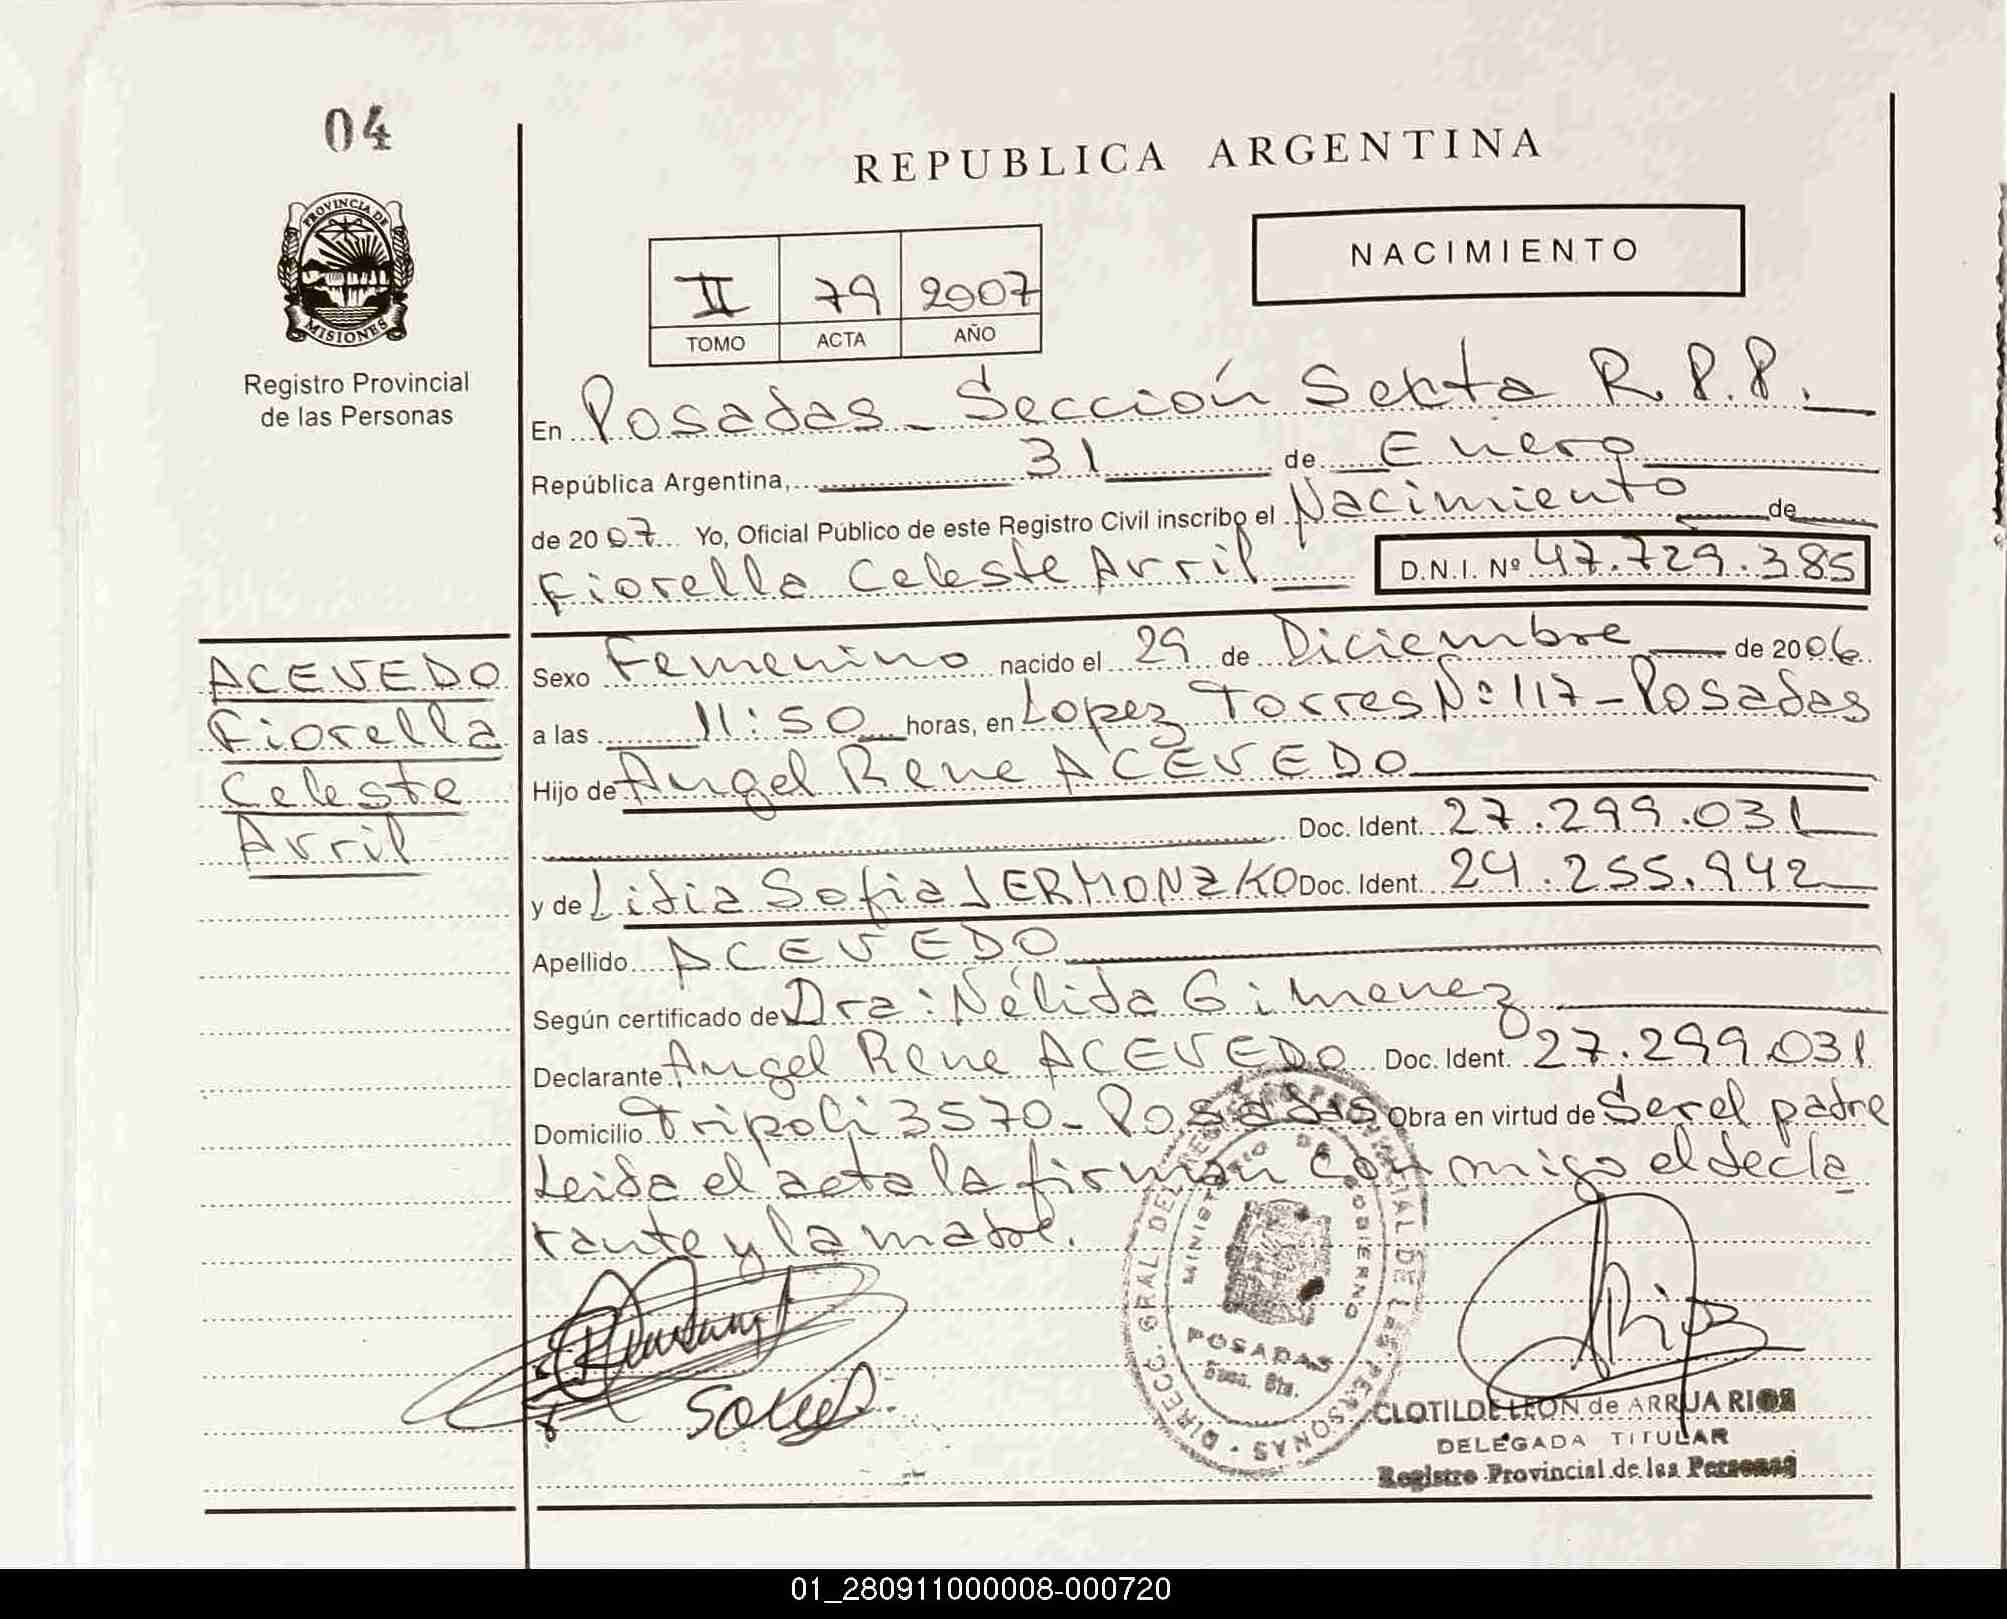 04
REPUBLICA ARGENTINA
PROVINCIA DE
MISIONES
Registro Provincial
de las Personas
NACIMIENTO
II 79 2007
TOMO ACTA AÑO
En Posadas - Sección Sexta R.P.P.
República Argentina, 31 de Enero
de 2007 Yo, Oficial Público de este Registro Civil inscribo el Nacimiento de
Fiorella Celeste Avril D.N.I. Nº 47.729.385
ACEVEDO
Fiorella
Celeste
Avril
Sexo Femenino nacido el 29 de Diciembre de 2006
a las 11:50 horas, en Lopez Torres Nº 117 - Posadas
Hijo de Angel Rene ACEVEDO
Doc. Ident. 27.299.031
y de Lidia Sofia JERMONZKO Doc. Ident. 24.255.942
Apellido ACEVEDO
Según certificado de Dra: Nélida Gimenez
Declarante Angel Rene ACEVEDO Doc. Ident. 27.299.031
Domicilio Tripoli 3570 - Posadas Obra en virtud de Ser el padre
Leida el acta la firman conmigo el decla
rante y la madre.
DIRECC. GRAL. DEL REGISTRO PROVINCIAL DE LAS PERSONAS
MINISTERIO DE GOBIERNO
POSADAS
CLOTILDE LEON de ARRUA RIOS
DELEGADA TITULAR
Registro Provincial de las Personas
01_280911000008-000720